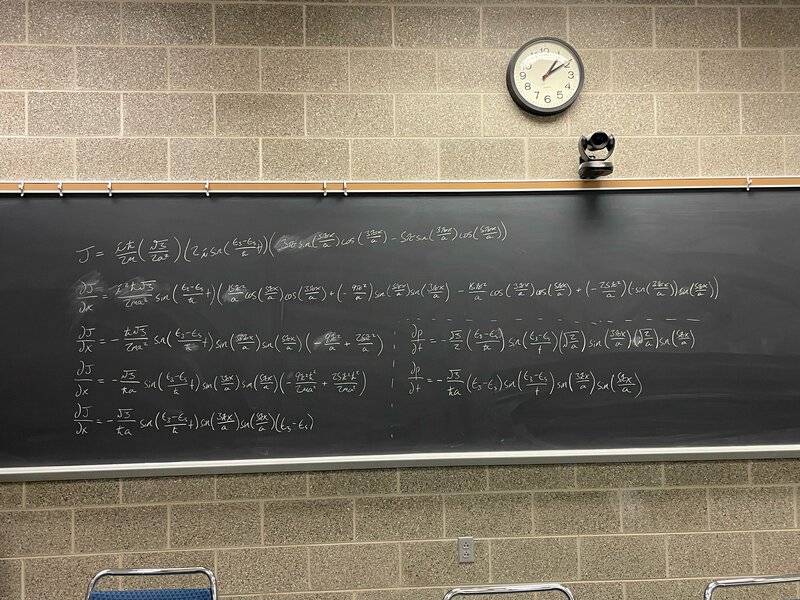 12
1
2
3
4
5
6
7
8
9
10
J = iħ/2m (√3/2a²) (2i sin(E₃-E₅/ħ t)) (3π sin(5πx/a) cos(3πx/a) - 5π sin(3πx/a) cos(5πx/a))
∂J/∂x = i²ħ√3/2ma² sin(E₃-E₅/ħ t) (15π²/a cos(5πx/a) cos(3πx/a) + (-9π²/a) sin(5πx/a) sin(3πx/a) - 15π²/a cos(3πx/a) cos(5πx/a) + (-25π²/a)(-sin(3πx/a)) sin(5πx/a))
∂J/∂x = -ħ√3/2ma² sin(E₃-E₅/ħ t) sin(3πx/a) sin(5πx/a) (-9π²/a + 25π²/a)
∂J/∂x = -√3/ħa sin(E₃-E₅/ħ t) sin(3πx/a) sin(5πx/a) (-9π²ħ²/2ma² + 25π²ħ²/2ma²)
∂J/∂x = -√3/ħa sin(E₃-E₅/ħ t) sin(3πx/a) sin(5πx/a) (E₃-E₅)
∂p/∂t = -√3/2 (E₃-E₅/ħ) sin(E₃-E₅/t) (√2/a) sin(3πx/a) (√2/a) sin(5πx/a)
∂p/∂t = -√3/ħa (E₃-E₅) sin(E₃-E₅/t) sin(3πx/a) sin(5πx/a)